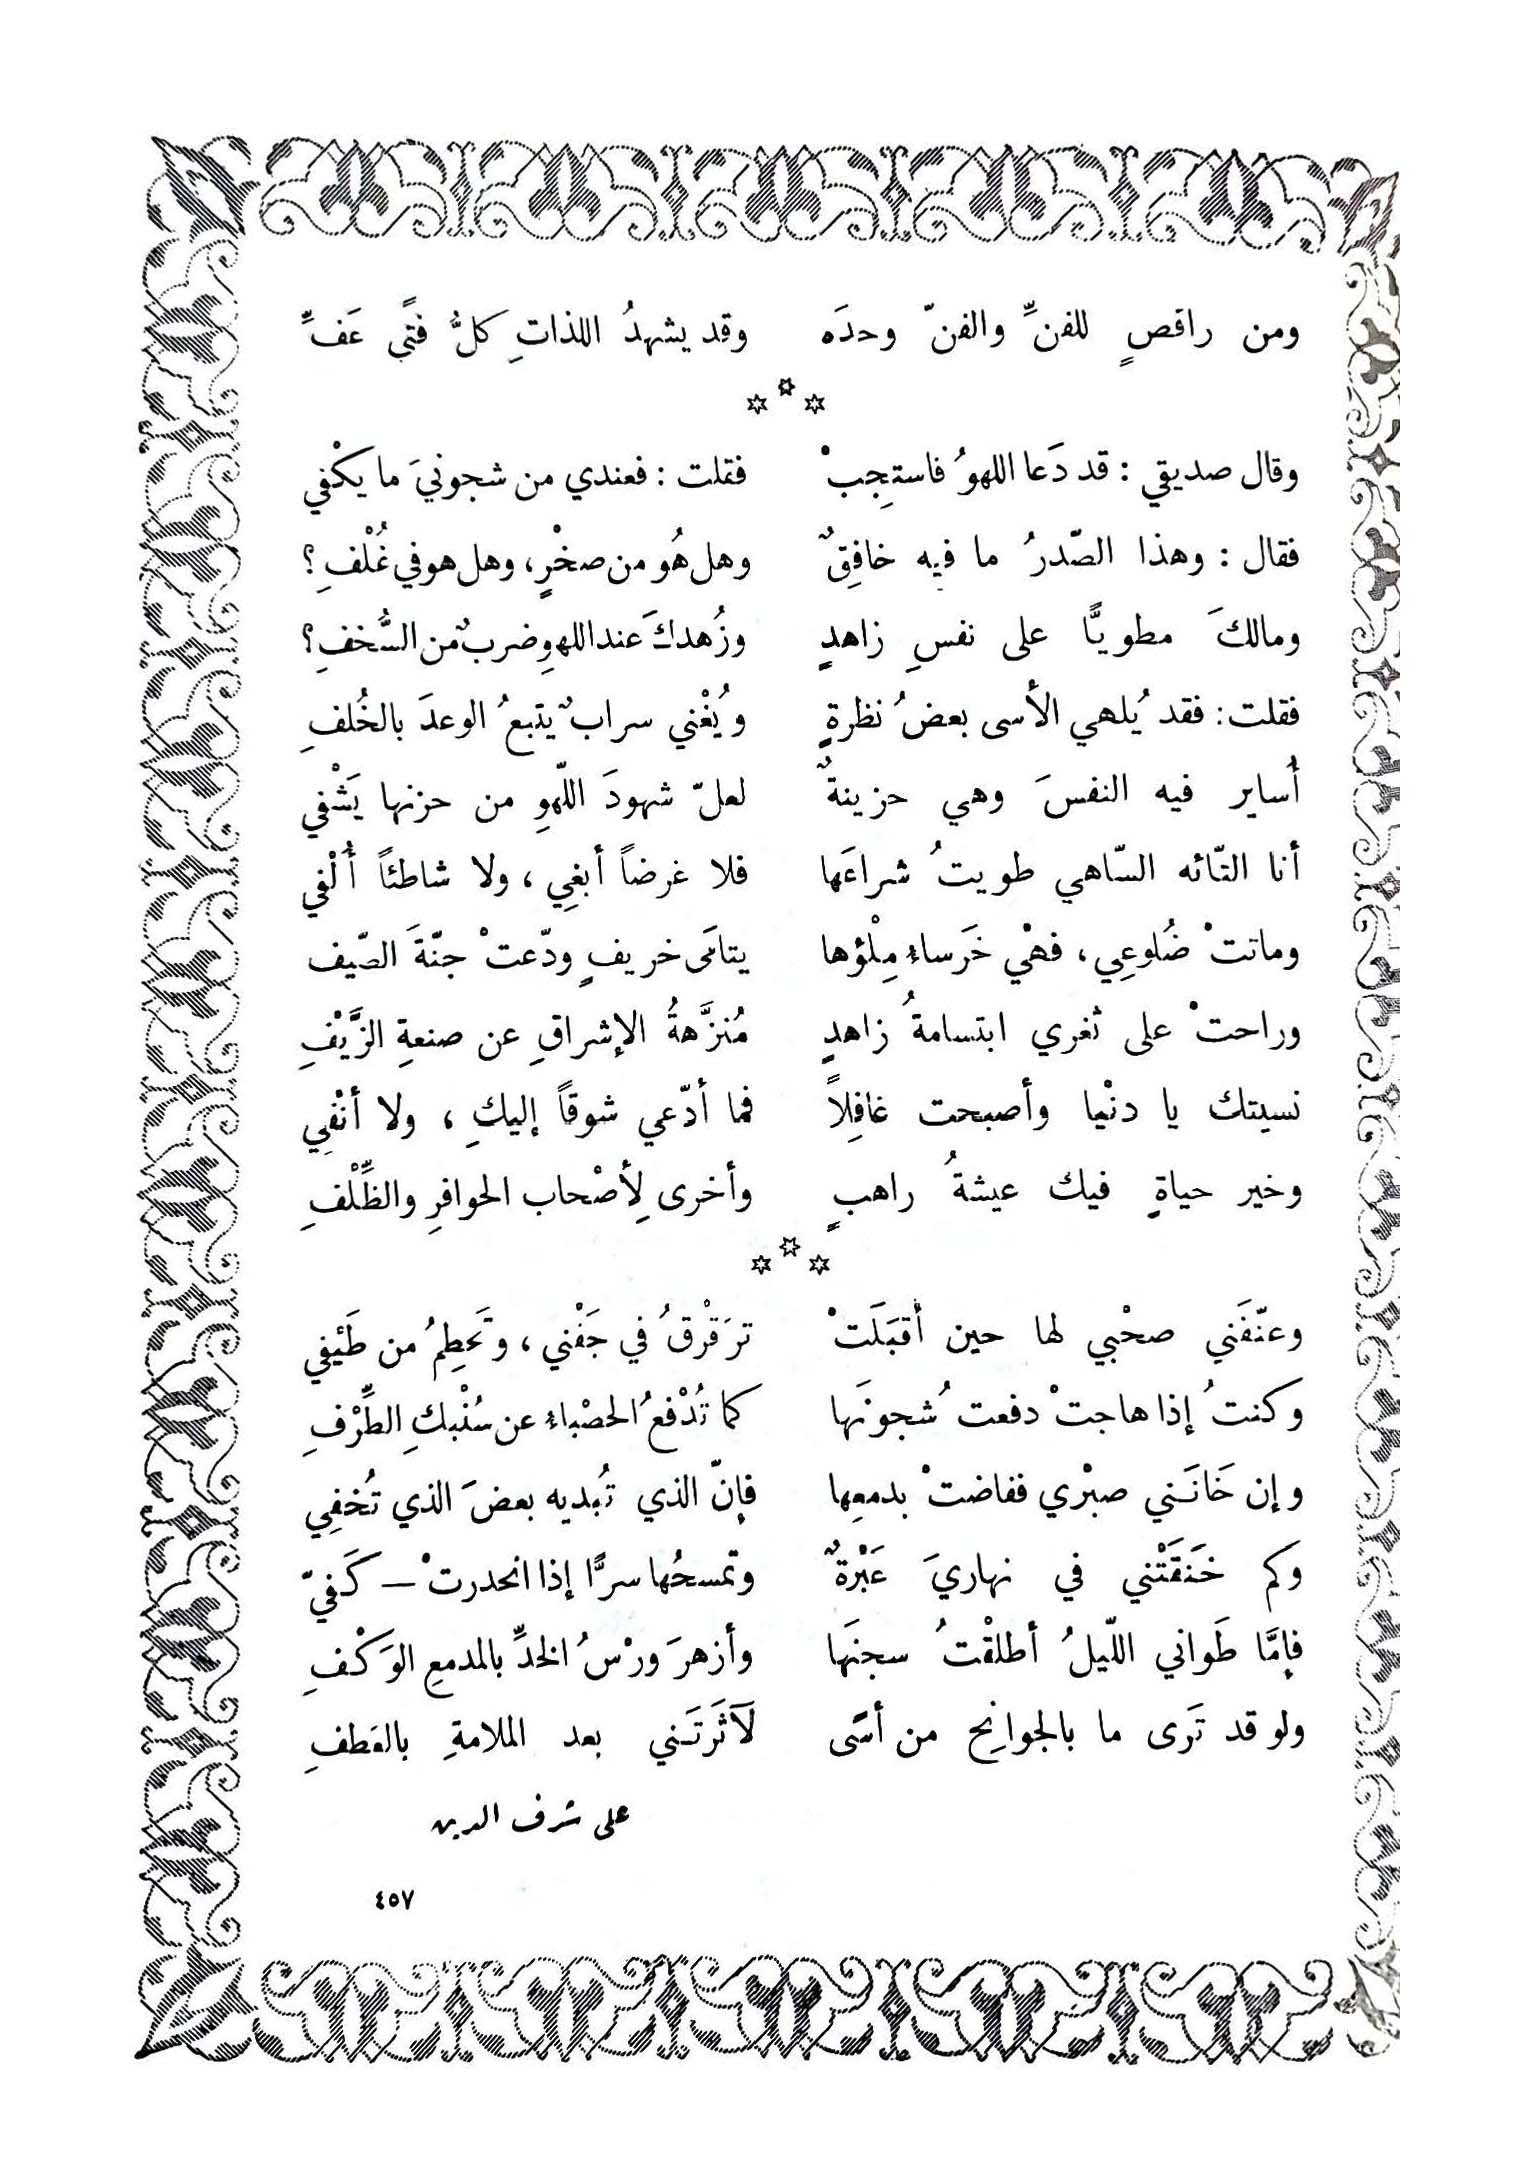 ومن راقصٍ للفنِّ والفنّ وحدَه وقد يشهدُ اللذاتِ كلُّ فتًى عَفٍّ
وقال صديقي : قد دَعا اللهوُ فاستجِبْ فقلت : فعندي من شجونيَ ما يكْفي
فقال : وهذا الصّدرُ ما فيه خافِقٌ وهل هُو من صخْرٍ، وهل هو في غُلْفِ ؟
ومالكَ مطويًّا على نفسِ زاهدٍ وزُهدكَ عند اللهوِ ضربٌ من السُّخفِ ؟
فقلت : فقد يُلهي الأسى بعضُ نظرةٍ ويُغْني سرابٌ يتبعُ الوعدَ بالخُلفِ
أُساير فيه النفسَ وهي حزينةٌ لعلّ شهودَ اللّهوِ من حزنها يَشْفي
أنا التّائه السّاهي طويتُ شراعَها فلا غرضاً أبغي ، ولا شاطئاً أُلْفي
وماتتْ ضُلوعِي، فهْي خَرساء مِلْؤها يتامَى خريفٍ ودّعتْ جنّةَ الصّيف
وراحتْ على ثغري ابتسامةُ زاهدٍ مُنزَّهةُ الإشراقِ عن صنعةِ الزَّيْفِ
نسيتك يا دنْيا وأصبحت غافِلاً فما أدّعي شوقاً إليكِ ، ولا أنْفِي
وخير حياةٍ فيك عيشةُ راهبٍ وأخرى لِأصْحاب الحوافرِ والظِّلْفِ
وعنّفَني صحْبي لها حين أقبَلَتْ ترَقْرقُ في جَفْني ، وتَحطِمُ من طَيْفي
وكنتُ إذا هاجتْ دفعتُ شجونَها كما تُدْفعُ الحصْباء عن سُنْبكِ الطِّرْفِ
وإن خَانَني صبْري ففاضتْ بدمعِها فإنّ الذي تُبديه بعضَ الذي تُخفِي
وكم خَنقَتْني في نهاريَ عَبْرةٌ وتمسحُها سرًّا إذا انحدرتْ – كَفيّ
فإمَّا طَواني اللّيلُ أطلقْتُ سجنَها وأزهرَ ورْسُ الخدِّ بالمدمعِ الوَكْفِ
ولو قد تَرى ما بالجوانِح من أسًى لآثَرتَني بعد الملامةِ بالعَطفِ
علي شرف الدين
٤٥٧